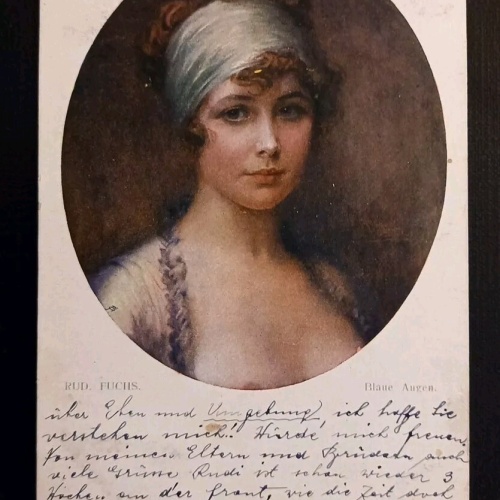 RUD. FUCHS.
Blaue Augen.
über Eben und Umgebung, ich hoffe Sie
verstehen mich! Würde mich freuen.
Von meinen Eltern und Brüdern auch
viele Grüsse Rudi ist schon wieder 3
Wochen an der Front, wie die Zeit doch